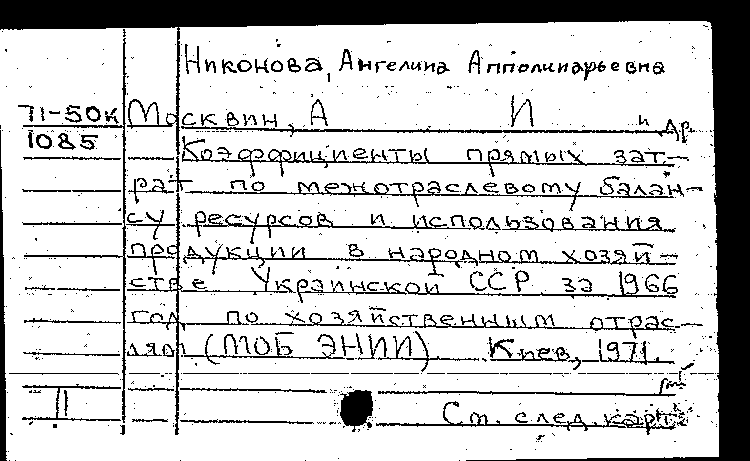 Никонова, Ангелина Апполинарьевна
71-50к Москвин, А И и др.
1085 Коэффициенты прямых зат-
рат по межотраслевому балан-
су ресурсов и использования
продукции в народном хозяй-
стве Украинской ССР за 1966
год по хозяйственным отрас-
лям (МОБ ЭНИИ) Киев, 1971.
11 См. след. карт